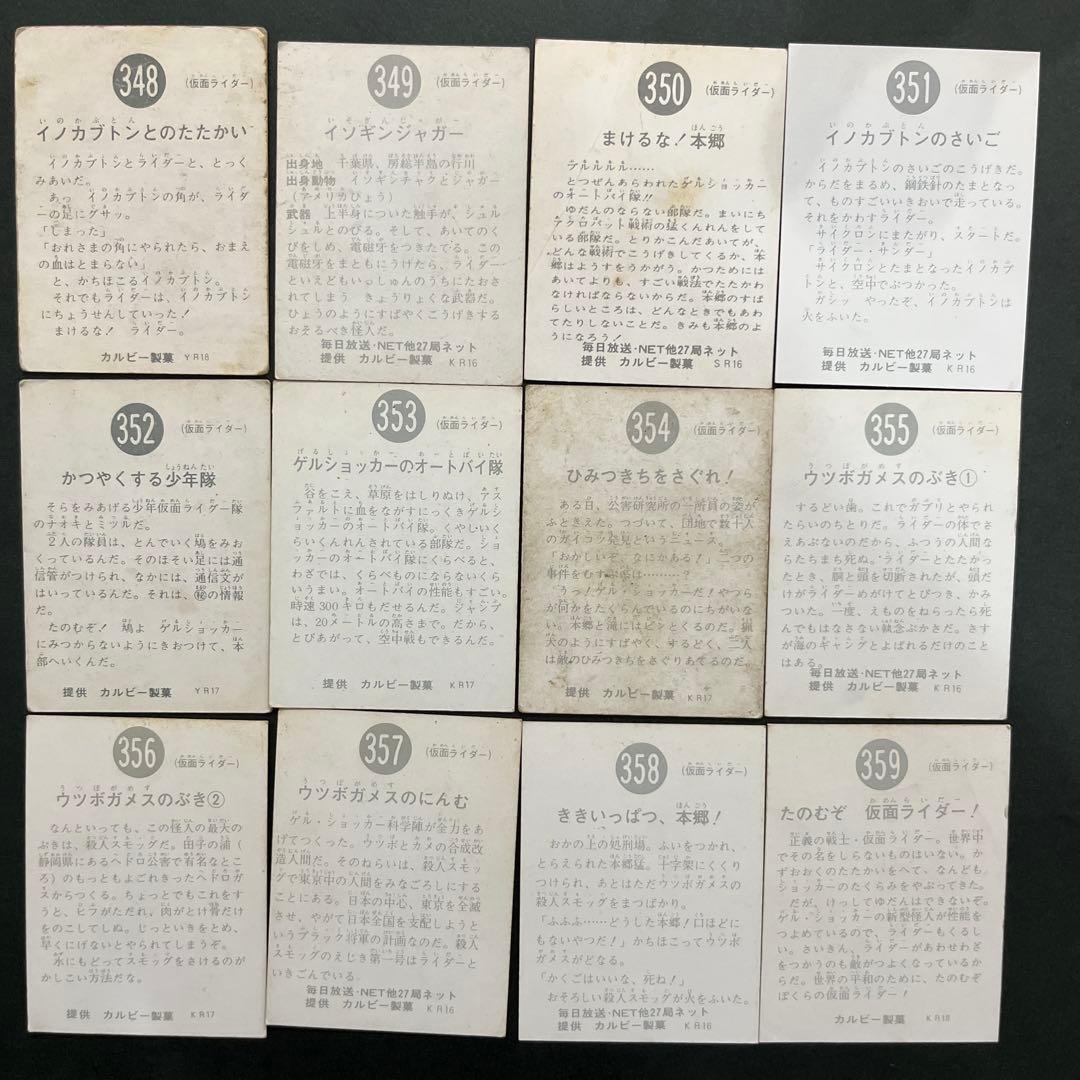 348
(仮面ライダー)
イノカブトンとのたたかい
イノカブトンとライダーと、とっく
みあいだ。
あっ イノカブトンの角が、ライダ
ーの足にグサッ。
「しまった」
「おれさまの角にやられたら、おまえ
の血はとまらない」
と、かちほこるイノカブトン。
それでもライダーは、イノカブトン
にちょうせんしていった!
まけるな! ライダー。
カルビー製菓 YR18
349
(仮面ライダー)
イソギンジャガー
出身地 千葉県、房総半島の行川
出身動物 イソギンチャクとジャガー
(アメリカひょう)
武器 上半身についた触手が、シュル
シュルとのびる。そして、あいてのく
びをしめ、電磁牙をつきたてる。この
電磁牙をまともにうけたら、ライダー
といえどもいっしゅんのうちにたおさ
れてしまう きょうりょくな武器だ。
ひょうのようにすばやくこうげきする
おそるべき怪人だ。
毎日放送・NET他27局ネット
提供 カルビー製菓 KR16
350
(仮面ライダー)
まけるな!本郷
ブルルルル……
とつぜんあらわれたゲルショッカー
のオートバイ隊!!
ゆだんのならない部隊だ。まいにち
アクロバット戦術の猛くんれんをして
いる部隊だ。とりかこんだあいてが、
どんな戦術でこうげきしてくるか、本
郷はようすをうかがう。かつためには
あいてよりも、すごい戦法でたたかわ
なければならないからだ。本郷のすば
らしいところは、どんなときでもあわ
てたりしないことだ。きみも本郷のよ
うになろう!
毎日放送・NET他27局ネット
提供 カルビー製菓 SR16
351
(仮面ライダー)
イノカブトンのさいご
イノカブトンのさいごのこうげきだ。
からだをまるめ、鋼鉄針のたまとなっ
て、ものすごいいきおいで走っている。
それをかわすライダー。
サイクロンにまたがり、スタートだ。
「ライダー・サンダー」
サイクロンとたまとなったイノカブ
トンと、空中でぶつかった。
ガシッ やったぞ、イノカブトンは
火をふいた。
毎日放送・NET他27局ネット
提供 カルビー製菓 KR16
352
(仮面ライダー)
かつやくする少年隊
そらをみあげる少年仮面ライダー隊
のナオキとミツルだ。
2人の隊員は、とんでいく鳩をみお
くっているんだ。そのほそい足には通
信管がつけられ、なかには、通信文が
はいっているんだ。それは、㊙の情報
だ。
たのむぞ! 鳩よ ゲルショッカー
にみつからないようにきおつけて、本
部へいくんだ。
提供 カルビー製菓 YR17
353
(仮面ライダー)
ゲルショッカーのオートバイ隊
谷をこえ、草原をはしりぬけ、アス
ファルトに血をながすにっくきゲルシ
ョッカーのオートバイ隊。くやしいく
らいくんれんされている部隊だ。ショ
ッカーのオートバイ隊にくらべると、
わざでは、くらべものにならないくら
いうまい。オートバイの性能もすごい。
時速300キロもだせるんだ。ジャンプ
は、20メートルの高さまで。だから、
とびあがって、空中戦もできるんだ。
提供 カルビー製菓 KR17
354
(仮面ライダー)
ひみつきちをさぐれ!
ある日、公害研究所の一所員の姿が
ふときえた。つづいて、団地で数十人
のガイコツ発見というニュース。
「おかしいぞ。なにかある!」二つの
事件をむすぶ点は……?
うっ!ゲル・ショッカーだ!やつら
が何かをたくらんでいるのにちがいな
い。本郷と滝にはピンとくるのだ。猟
犬のようにすばやく、するどく、二人
は敵のひみつきちをさぐりあてるのだ。
提供 カルビー製菓 KR17
355
(仮面ライダー)
ウツボガメスのぶき①
するどい歯。これでガブリとやられ
たらいのちとりだ。ライダーの体でさ
えあぶないのだから、ふつうの人間な
らたちまち死ぬ。ライダーとたたかっ
たとき、胴と頭を切断されたが、頭だ
けがライダーめがけてとびつき、かみ
ついた。一度、えものをねらったら死
んでもはなさない執念ぶかさだ。さす
が海のギャングとよばれるだけのこと
はある。
毎日放送・NET他27局ネット
提供 カルビー製菓 KR16
356
(仮面ライダー)
ウツボガメスのぶき②
なんといっても、この怪人の最大の
ぶきは、殺人スモッグだ。田子の浦(
静岡県にあるヘドロ公害で有名なとこ
ろ)のもっともよごれきったヘドロガ
スからつくる。ちょっとでもこれをす
うと、ヒフがただれ、肉がとけ骨だけ
をのこしてしぬ。じっといきをとめ、
早くにげないとやられてしまうぞ。
水にもどってスモッグをさけるのが
かしこい方法だな。
提供 カルビー製菓 KR17
357
(仮面ライダー)
ウツボガメスのにんむ
ゲル・ショッカー科学陣が全力をあ
げてつくった。ウツボとカメの合成改
造人間だ。そのねらいは、殺人スモッ
グで東京中の人間をみなごろしにする
ことにある。日本の中心、東京を全滅
させ、やがて日本全国を支配しようと
いうブラック将軍の計画なのだ。殺人
スモッグのえじき第一号はライダーと
いきごんでいる。
毎日放送・NET他27局ネット
提供 カルビー製菓 KR16
358
(仮面ライダー)
ききいっぱつ、本郷!
おかの上の処刑場。ふいをつかれ、
とらえられた本郷猛。十字架にくくり
つけられ、あとはただウツボガメスの
殺人スモッグをまつばかり。
「ふふふ……どうした本郷!口ほどに
もないやつだ!」かちほこってウツボ
ガメスがどなる。
「かくごはいいな、死ね!」
おそろしい殺人スモッグが火をふいた。
毎日放送・NET他27局ネット
提供 カルビー製菓 KR16
359
(仮面ライダー)
たのむぞ 仮面ライダー!
正義の戦士・仮面ライダー。世界中
でその名をしらないものはいない。か
ずおおくのたたかいをへて、なんども
ショッカーのたくらみをやぶってきた。
だが、けっしてゆだんはできないぞ。
ゲル・ショッカーの新型怪人が性能を
つよめているので、ライダーもくるし
い。さいきん、ライダーがあわせわざ
をつかうのも敵がつよくなっているから
だ。世界の平和のために、たのむぞ
ぼくらの仮面ライダー!
カルビー製菓 KR18